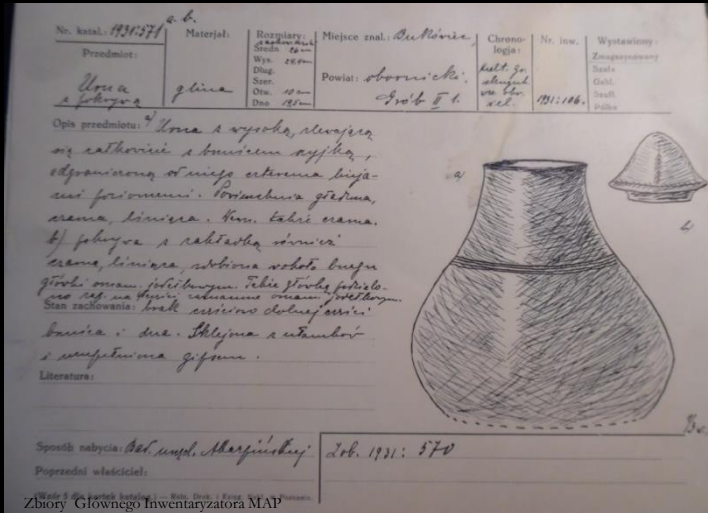 a. b.
Nr. katal.: 1931:571
Przedmiot:
Urna z pokrywą
Materjał:
glina
Rozmiary:
Średn. 26 cm
Wys.
Dług.
Szer.
Otw. 10 cm
Dno
Miejsce znal.:
Powiat: obornicki.
Grób II 1.
Chronologja:
Nr. inw.
1931:106.
Wystawiony:
Zmagazynowany
Szafa
Gabl.
Szufl.
Półka
Opis przedmiotu: a/ Urna z wysoką, zlewającą
się całkowicie z brzuścem szyjką,
odgraniczoną od niego czterema linja-
mi poziomemi. Powierzchnia gładka,
czarna, lśniąca. Wewn. także czarna.
b/ pokrywa z zakładką również
czarna, lśniąca, zdobiona wokoło brzegu
główki ornam. jodełkowym. Także główkę podzielo-
no na części ornam. jodełkowym.
Stan zachowania: brak części dolnej części
brzuśca i dna. Sklejona z ułamków
i uzupełniona gipsem.
Literatura:
Sposób nabycia: Bad.
Zob. 1931: 570
Poprzedni właściciel:
a
b
Zbiory Głownego Inwentaryzatora MAP